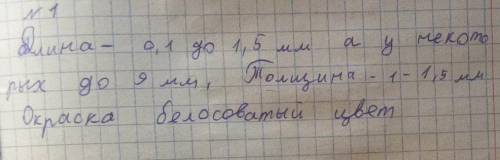 №1
Длина - 0,1 до 1,5 мм а у некото
рых до 9 мм, Толщина - 1-1,5 мм
Окраска белосоватый цвет